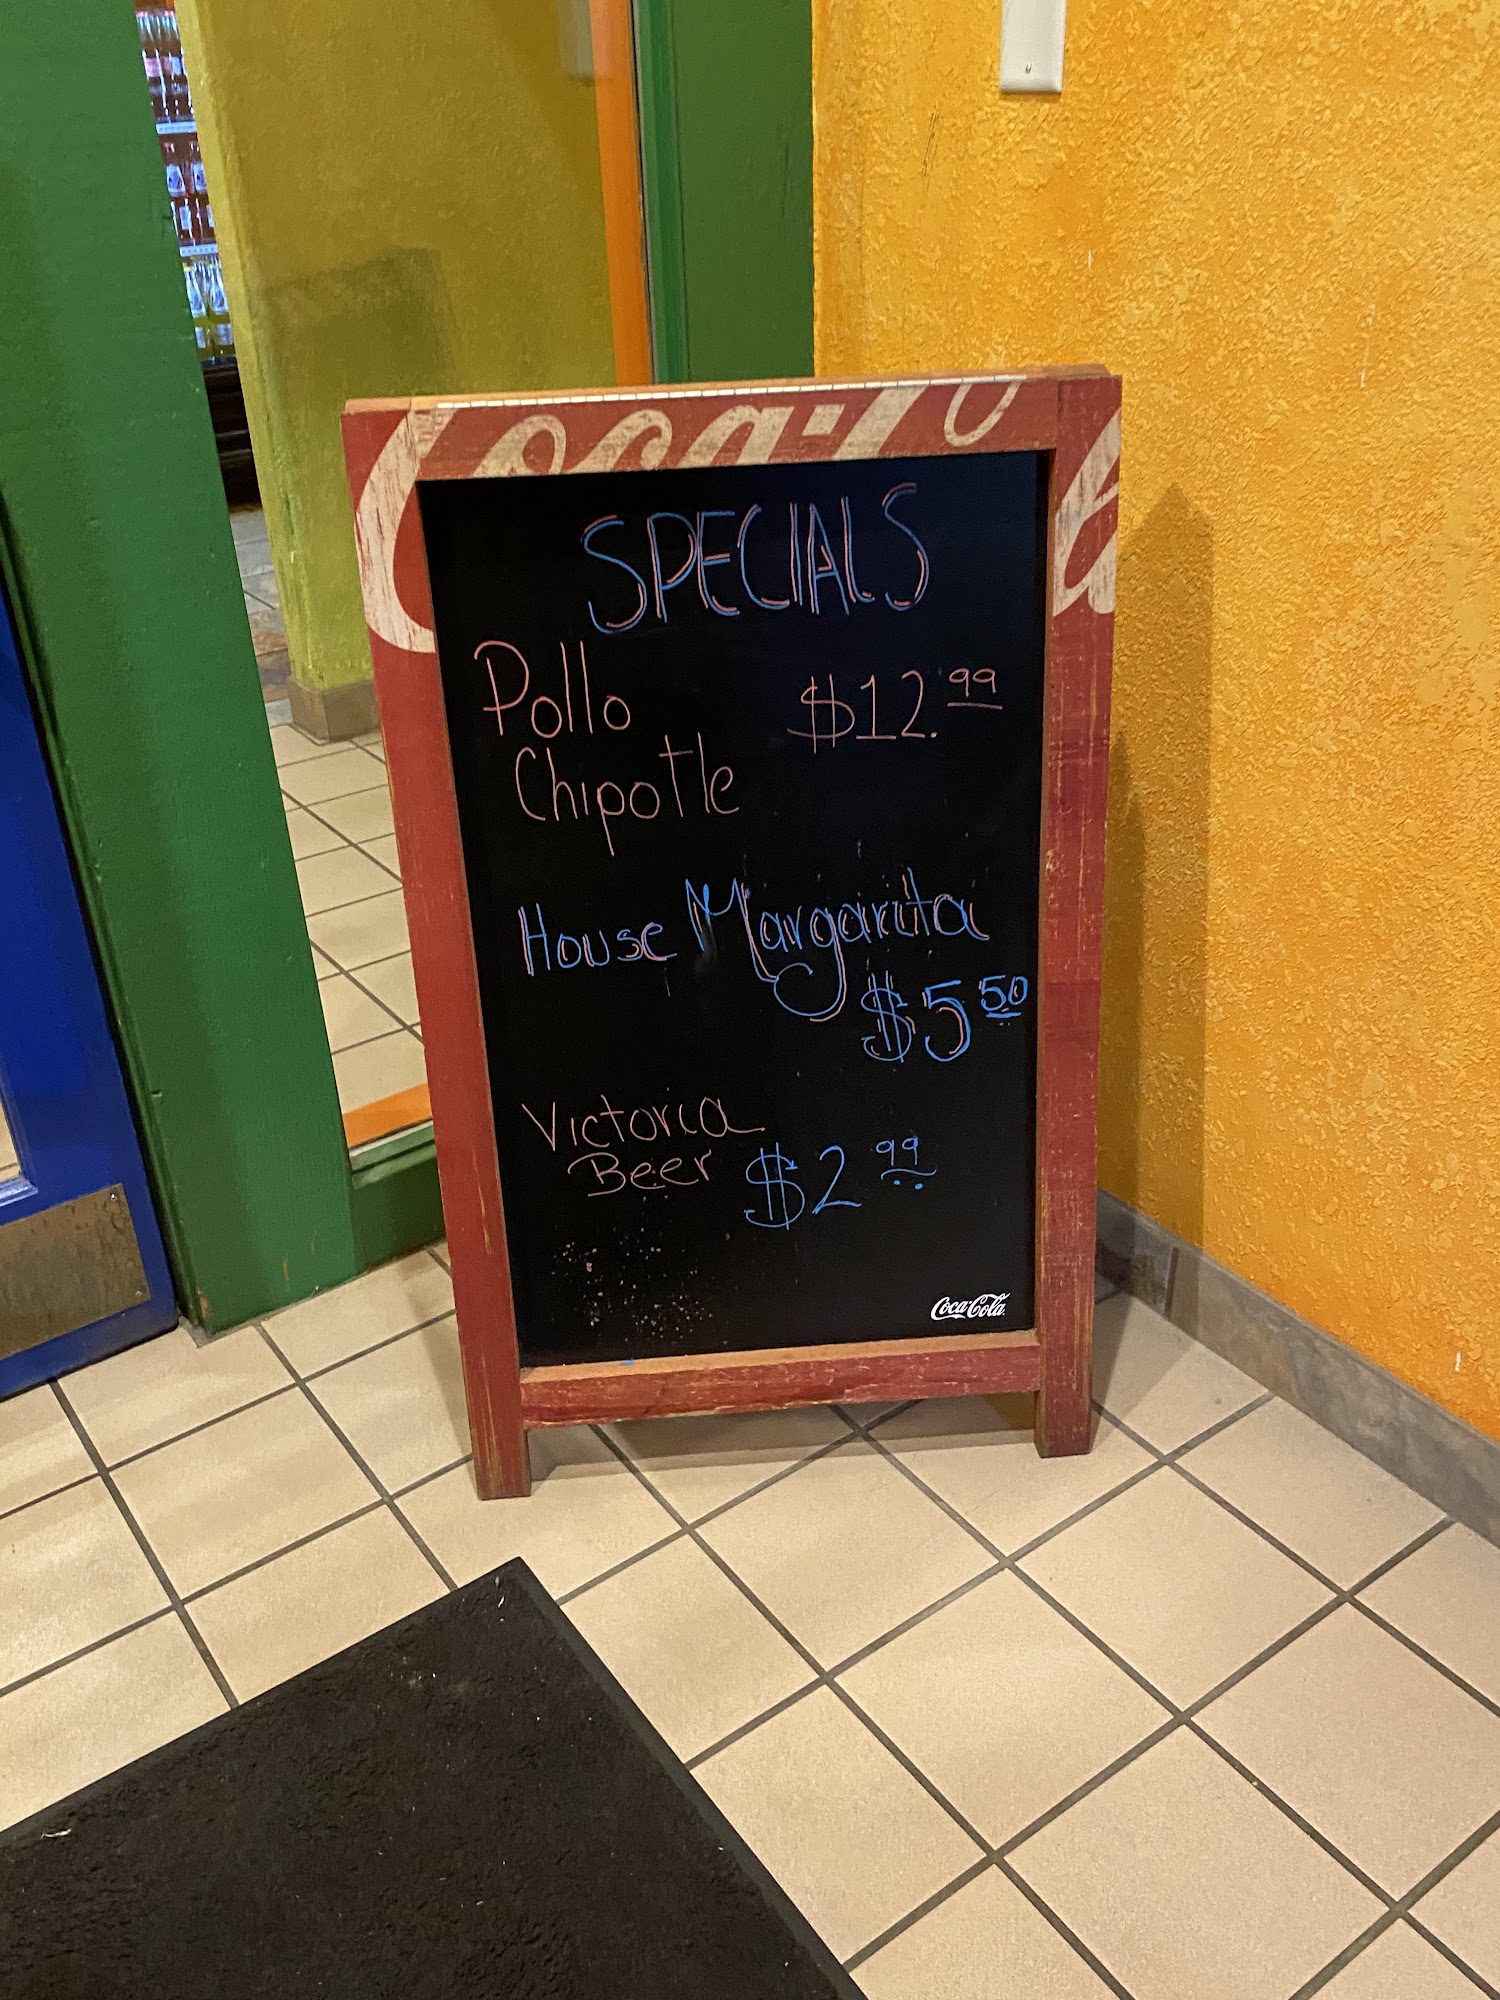 Coca-Co
SPECIALS
Pollo $12.99
Chipotle
House Margarita
$5 50
Victoria
Beer $2 99
Coca-Cola